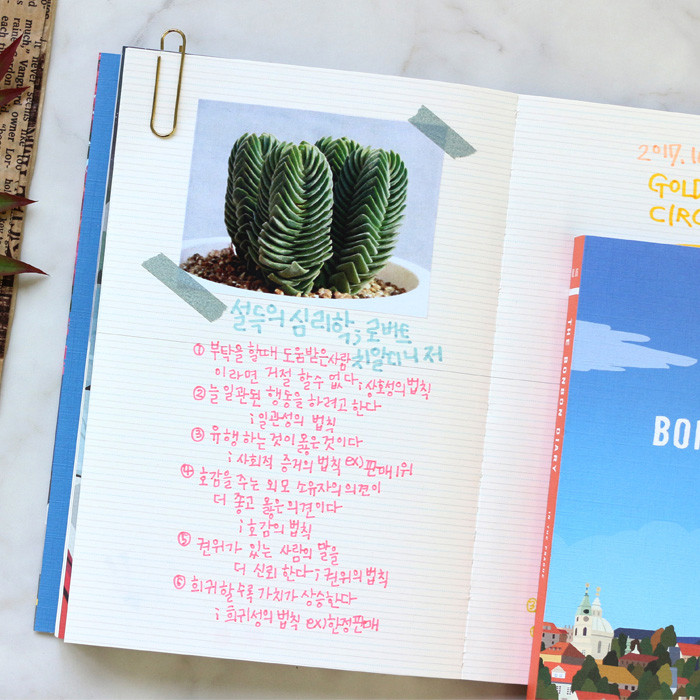 설득의 심리학, 로버트
치알디니 저
① 부탁을 할때 도움받은사람
이라면 거절 할수 없다 ; 상호성의 법칙
② 늘 일관된 행동을 하려고 한다
; 일관성의 법칙
③ 유행하는것이 옳은것이다
; 사회적 증거의 법칙 ex) 판매1위
④ 호감을 주는 외모 소유자의 의견이
더 좋고 옳은의견이다
; 호감의 법칙
⑤ 권위가 있는 사람의 말을
더 신뢰 한다 ; 권위의 법칙
⑥ 희귀할수록 가치가 상승한다
; 희귀성의 법칙 ex) 한정판매
2017.1
GOLD
CIRC
THE BONBON DIARY
BON
it never
much," Vang
owner Lor-